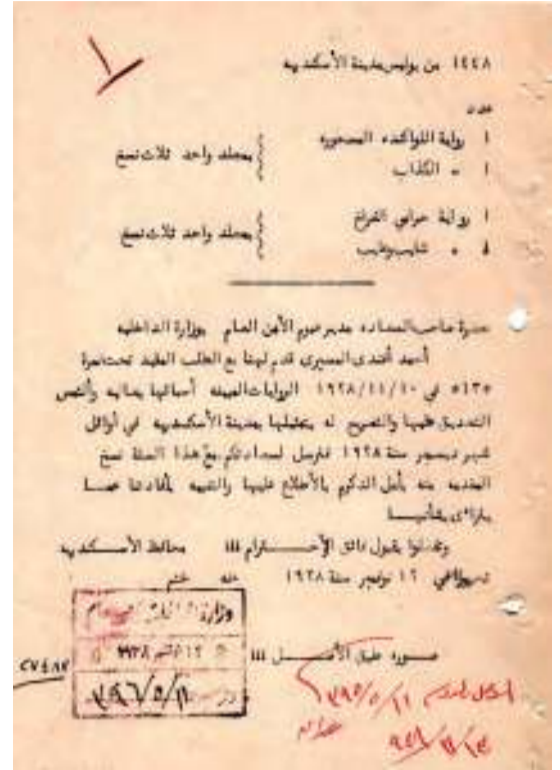 ١٤٤٨ من بوليس مدينة الأسكندريه
عدد
١ رواية اللوكانده المسحوره
١ » الكذاب
بمجلد واحد ثلاث نسخ
١ رواية حرامي الفراخ
١ » شايب وعايب
بمجلد واحد ثلاث نسخ
حضرة صاحب السعاده مدير عموم الأمن العام بوزارة الداخليه
أحمد أفندى المسيرى قدم لهنا مع الطلب المقيد تحت نمرة
٥١٣٥ في ١٩٢٨/١١/١٠ الروايات المبينه أسمائها بعاليه وألتمس
التصديق عليها والتصريح له بتمثيلها بمدينة الأسكندريه في أوائل
شهر ديسمبر سنة ١٩٢٨ فنرسل لسعادتكم مع هذا الستة نسخ
المقدمه منه بأمل التكرم بالأطلاع عليها والتنبيه بأفادتنا عما
يتراأى بشأنها
وتفضلوا بقبول فائق الأحترام ،،، محافظ الأسكندريه
تحريرا في ١٢ نوفمبر سنة ١٩٢٨
ختم
صوره طبق الأصل ،،،
وزارة الداخلية
١٩٢٨